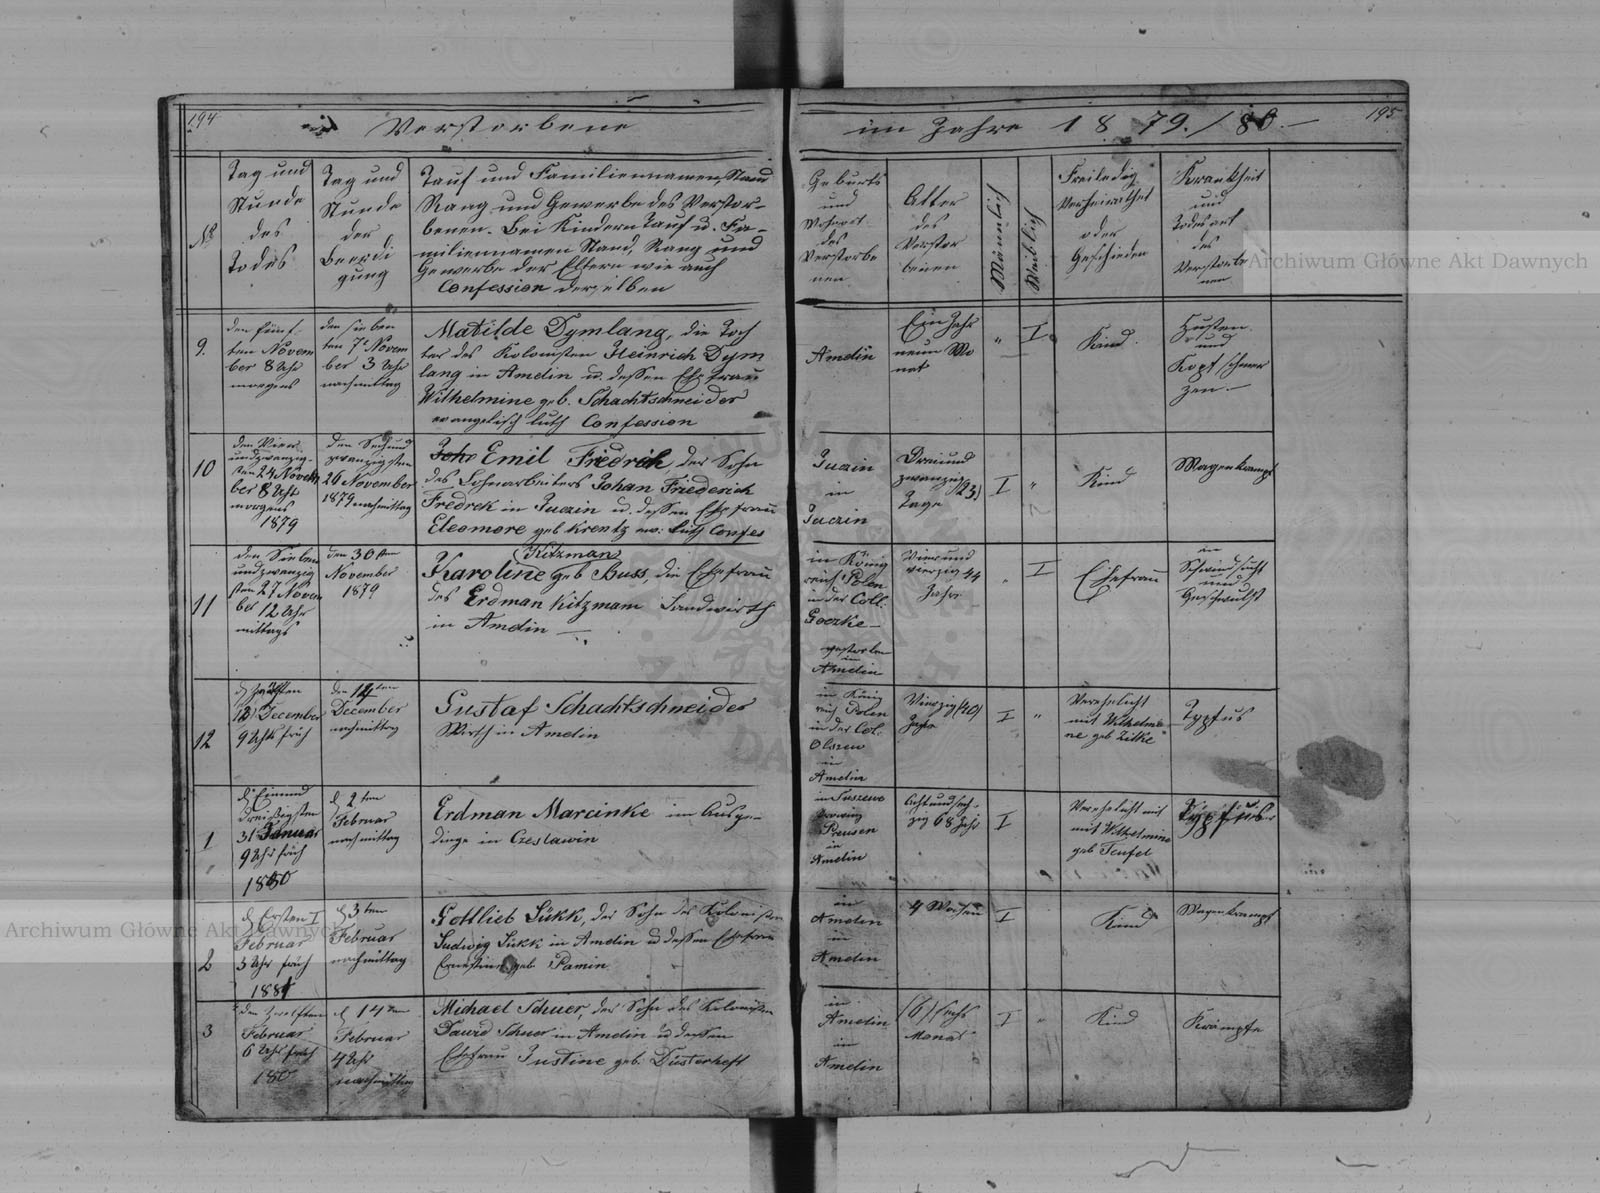 194
Verstorbene
im Jahre 1879./80.—
195
№
Tag und
Stunde
des
Todes
Tag und
Stunde
der
Beerdi
gung
Tauf und Familiennamen, Stand
Rang und Gewerbe des Verstor-
benen. Bei Kindern Tauf u. Fa-
miliennamen Stand, Rang und
Gewerbe der Eltern wie auch
Confession derselben
Geburts
und
Wohnort
des
Verstorbe
nen
Alter
des
Verstor
benen
Männlich
Weiblich
Freiledig
Verheirathet
oder
Geschieden
Krankheit
und
Todesart
des
Verstorbe
nen
9.
den fünf-
ten Novem
ber 8 Uhr
morgens
den sieben
ten 7 Novem
ber 3 Uhr
nachmittag
Matilde Dymlang, die Toch
ter des Kolonisten Heinrich Dym
lang in Amelin u. dessen Ehefrau
Wilhelmine geb. Schachtschneider
evangelisch luth Confession
Amelin
Ein Jahr
neun Mo
nat
"
I
Kind.
Husten
und
Kopfschmer
zen.—
10
den Vier
undzwanzig-
sten 24 Novem
ber 8 Uhr
morgens
1879
den Sechsund
zwanzigsten
26 November
1879 nachmittag
Emil Fredrik, der Sohn
des Lohnarbeiters Johan Friederich
Fredrek in Juczin u. dessen Ehefrau
Eleomore geb Krentz ew. luth Confes
Juczin
in
Juczin
Dreiund
zwanzig (23)
Tage
I
"
Kind
Magenkrampf
11
den Sieben
undzwanzig
sten 27 Novem
ber 12 Uhr
mittags
den 30 ten
November
1879
Kitzman
Karoline geb Buss, die Ehefrau
des Erdman Kitzmann Landwirth
in Amelin —
in König
reich Polen
in der Coll.
Goczke—
gestorben
in
Amelin
Vier und
vierzig 44
Jahre
"
I
Ehefrau
in
Schwindsucht
und
Geschwulst
12
December
9 Uhr früh
den 14 ten
December
nachmittag
Gustaf Schachtschneider
Wirth in Amelin
in König
reich Polen
in der Col.
Olszew
in
Amelin
Vierzig (40)
Jahre
I
"
Verehelicht
mit Wilhelmi
ne geb Zilke
Typfus
1
d. Einund
dreißigsten
31 Januar
9 Uhr früh
1880
d. 2 ten
Februar
nachmittag
Erdman Marcinke im Ausge-
dinge in Czeslawin
Preusen
in
Amelin
Achtundsech-
zig 68 Jahr
I
Verehelicht mit
mit Wilhelmine
geb Teufel
Typfus
2
d. Ersten I
Februar
3 Uhr früh
d. 3 ten
Februar
nachmittag
Gottlieb Sükk, der Sohn des Kolonisten
Ludwig Sükk in Amelin u dessen Ehefrau
Ernestine geb Pamin
in
Amelin
in
Amelin
4 Wochen
I
Kind
Magenkrampf
3
den Zwölften
Februar
6 Uhr früh
d. 14 ten
Februar
4 Uhr
nachmittag
Michael Scheuer, der Sohn des Kolonisten
Dawid Scheuer in Amelin u dessen
Ehefrau Justine geb. Düsterheft
in
Amelin
in
Amelin
(6) sechs
Monat
I
"
Kind
Krämpfe
Archiwum Główne Akt Dawnych
Archiwum Główne Akt Dawnych